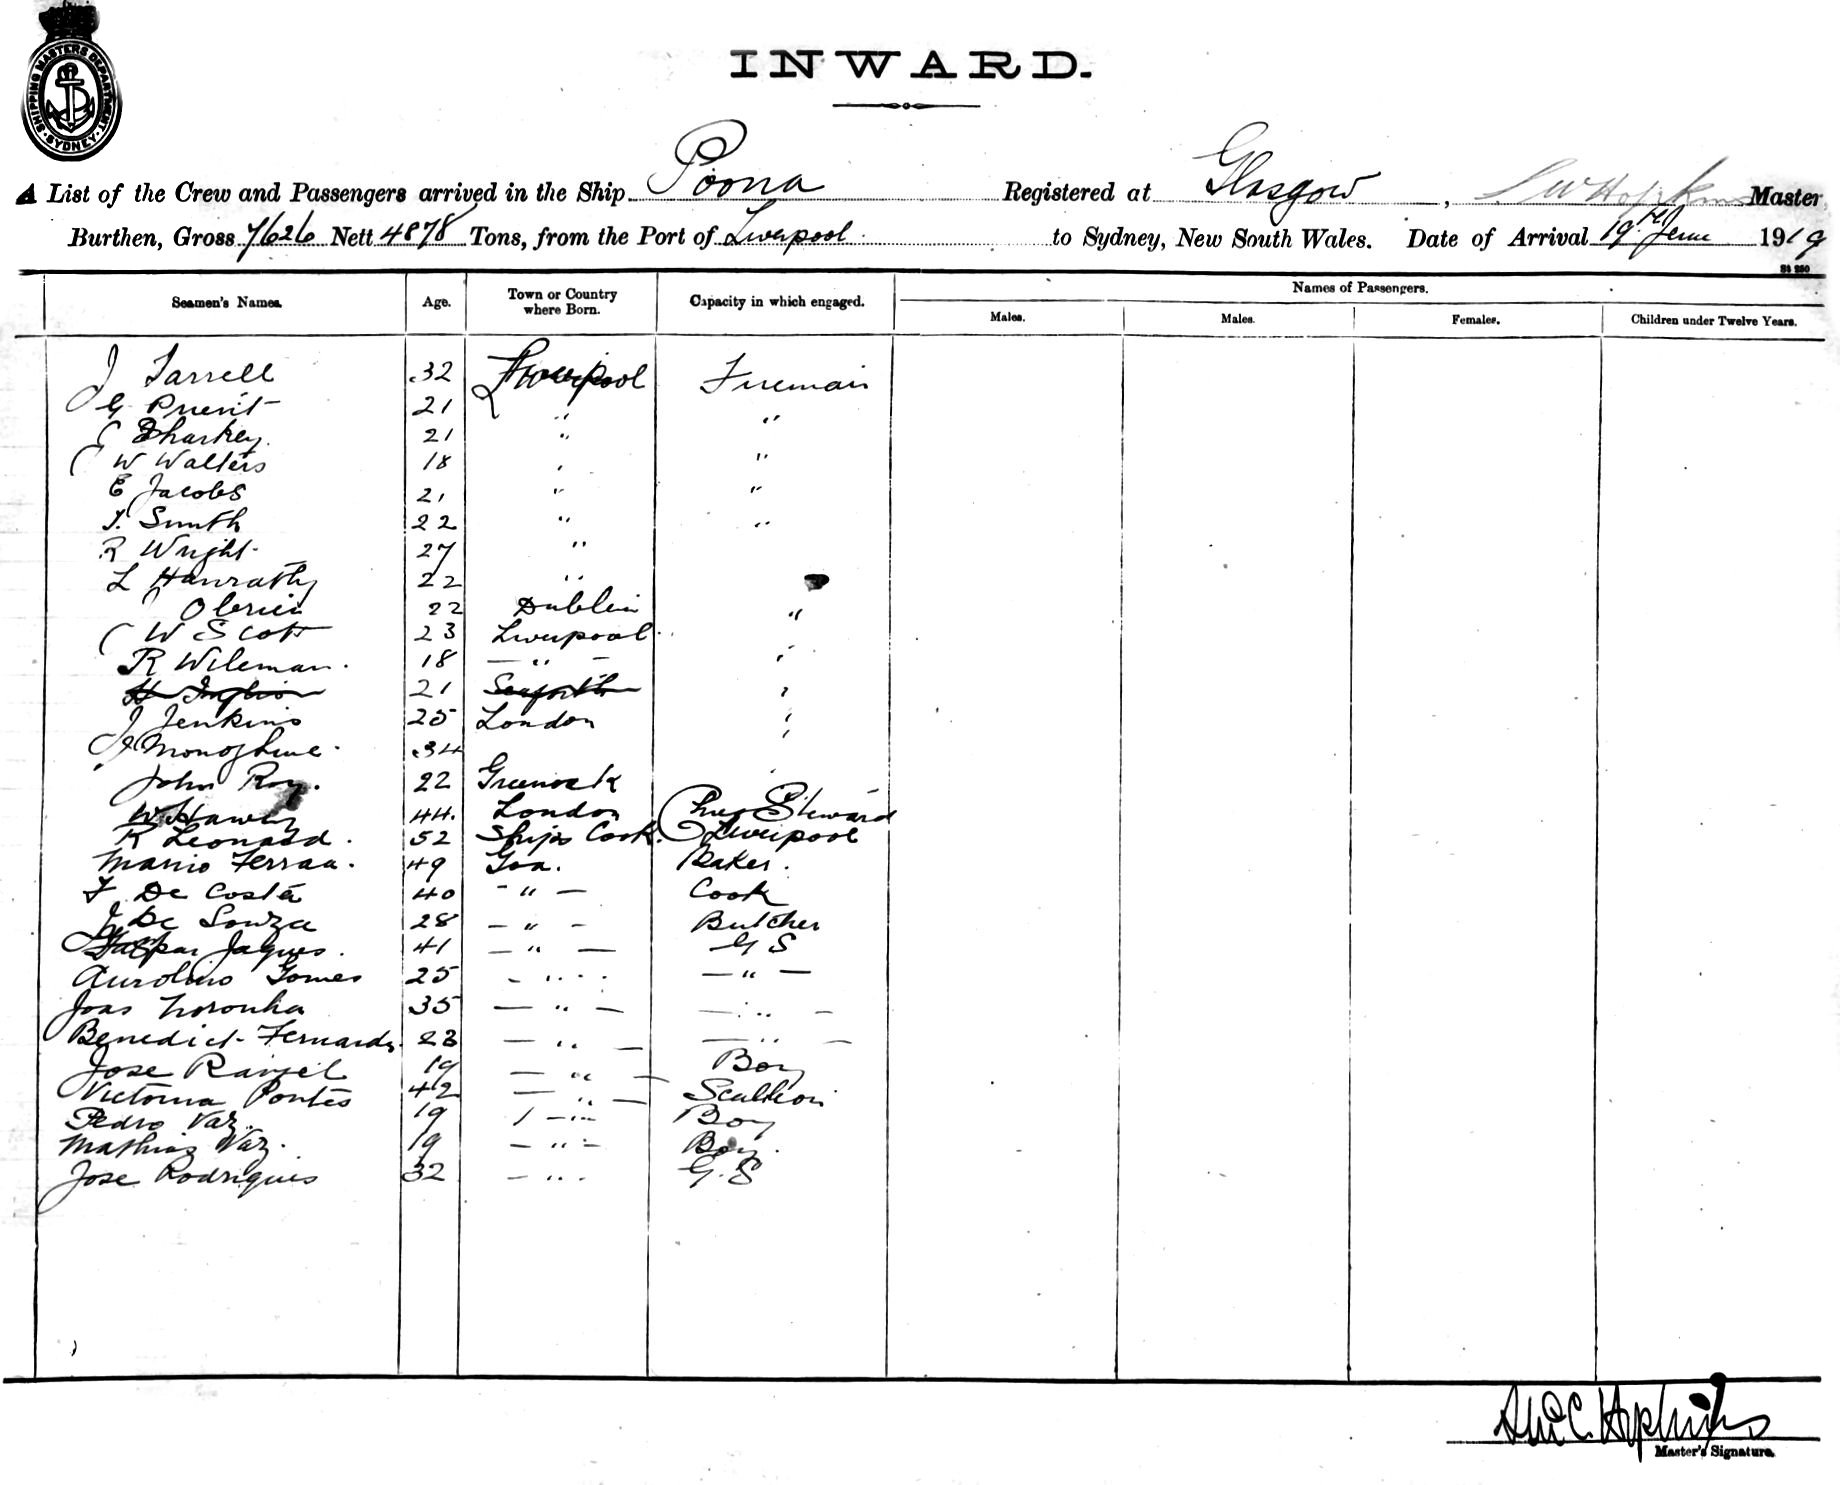 SHIPPING MASTERS DEPARTMENT · SYDNEY ·
INWARD.
A List of the Crew and Passengers arrived in the Ship Poona Registered at Glasgow, S W Hopkins Master,
Burthen, Gross 7626 Nett 4878 Tons, from the Port of Liverpool to Sydney, New South Wales. Date of Arrival 19th June 1919
Seamen's Names. Age. Town or Country where Born. Capacity in which engaged. Names of Passengers.
Males. Males. Females. Children under Twelve Years.
J Farrell 32 Liverpool Fireman
G 21 " "
E Sharkey. 21 " "
W Walters 18 " "
E Jacobs 21 " "
T. Smith 22 " "
R Wright 27 "
L Hanratty 22 "
Obrien 22 Dublin "
W Scott 23 Liverpool
R Wileman. 18 " "
H 21 Seaforth "
J Jenkins 25 London "
34
John Roy. 22 Greenock
W. 44. London Chief Steward
R Leonard. 52 Ships Cook. Liverpool
Mario Ferrau. 49 Goa. Baker.
F De Costa 40 - " - Cook
J De Souza 28 - " - Butcher
Gaspar Jaques. 41 - " - G S
Aurolino Gomes 25 - " - - " -
Joas Noronha 35 - " - - " -
Benedict Fernandes 23 - " - - " -
Jose Rangel 19 - " - Boy
Victoria Pontes 42 - " - Scullion
Pedro Vaz. 19 - " - Boy
Mathias Vaz. 19 - " - Boy.
Jose Rodriguis 32 - " - G. S
Hopkins
Master's Signature.